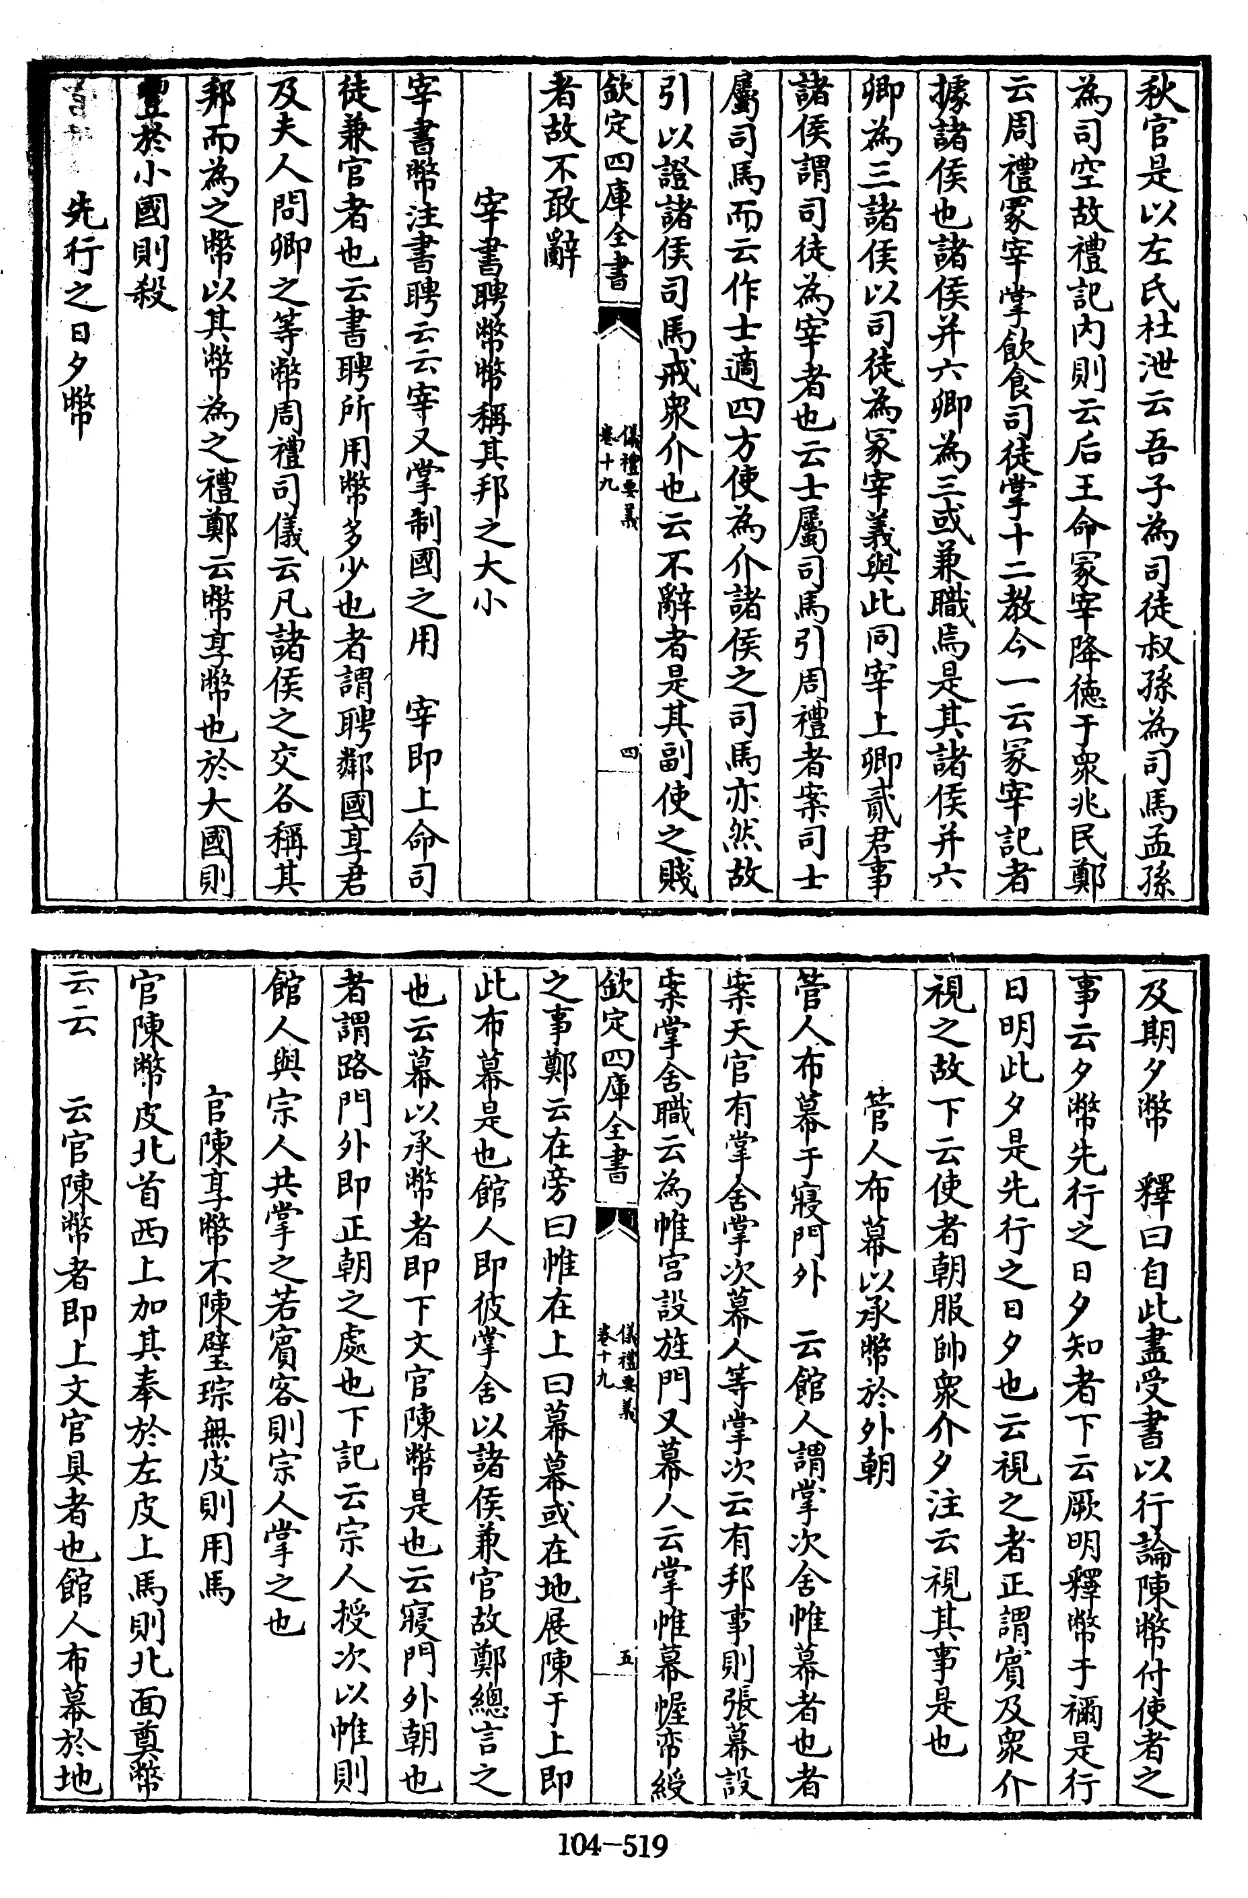 秋官是以左氏杜泄云吾子為司徒叔孫為司馬孟孫
為司空故禮記内則云后王命冢宰降徳于衆兆民鄭
云周禮冡宰掌飲食司徒掌十二教今一云冡宰記者
據諸侯也諸侯并六卿為三或兼職焉是其諸侯并六
卿為三諸侯以司徒為冢宰義與此同宰上卿貳君事
諸侯謂司徒為宰者也云士屬司馬引周禮者案司士
屬司馬而云作士適四方使為介諸侯之司馬亦然故
引以證諸侯司馬戒衆介也云不辭者是其副使之賤
欽定四庫全書
儀禮要義
卷十九
四
者故不敢辭
宰書聘幣幣稱其邦之大小
宰書幣注書聘云云宰又掌制國之用 宰即上命司
徒兼官者也云書聘所用幣多少也者謂聘鄰國享君
及夫人問卿之等幣周禮司儀云凡諸侯之交各稱其
邦而為之幣以其幣為之禮鄭云幣享幣也於大國則
豐於小國則殺
先行之日夕幣
及期夕幣 釋曰自此盡受書以行論陳幣付使者之
事云夕幣先行之日夕知者下云厥明釋幣于禰是行
日明此夕是先行之日夕也云視之者正謂賓及衆介
視之故下云使者朝服帥衆介夕注云視其事是也
管人布幕以承幣於外朝
管人布幕于寢門外 云館人謂掌次舍帷幕者也者
案天官有掌舍掌次幕人等掌次云有邦事則張幕設
案掌舍職云為帷宫設旌門又幕人云掌帷幕幄帟綬
欽定四庫全書
儀禮要義
卷十九
五
之事鄭云在旁曰帷在上曰幕幕或在地展陳于上即
此布幕是也館人即彼掌舍以諸侯兼官故鄭總言之
也云幕以承幣者即下文官陳幣是也云寢門外朝也
者謂路門外即正朝之處也下記云宗人授次以帷則
館人與宗人共掌之若賓客則宗人掌之也
官陳享幣不陳璧琮無皮則用馬
官陳幣皮北首西上加其奉於左皮上馬則北面奠幣
云云 云官陳幣者即上文官具者也館人布幕於地
104-519